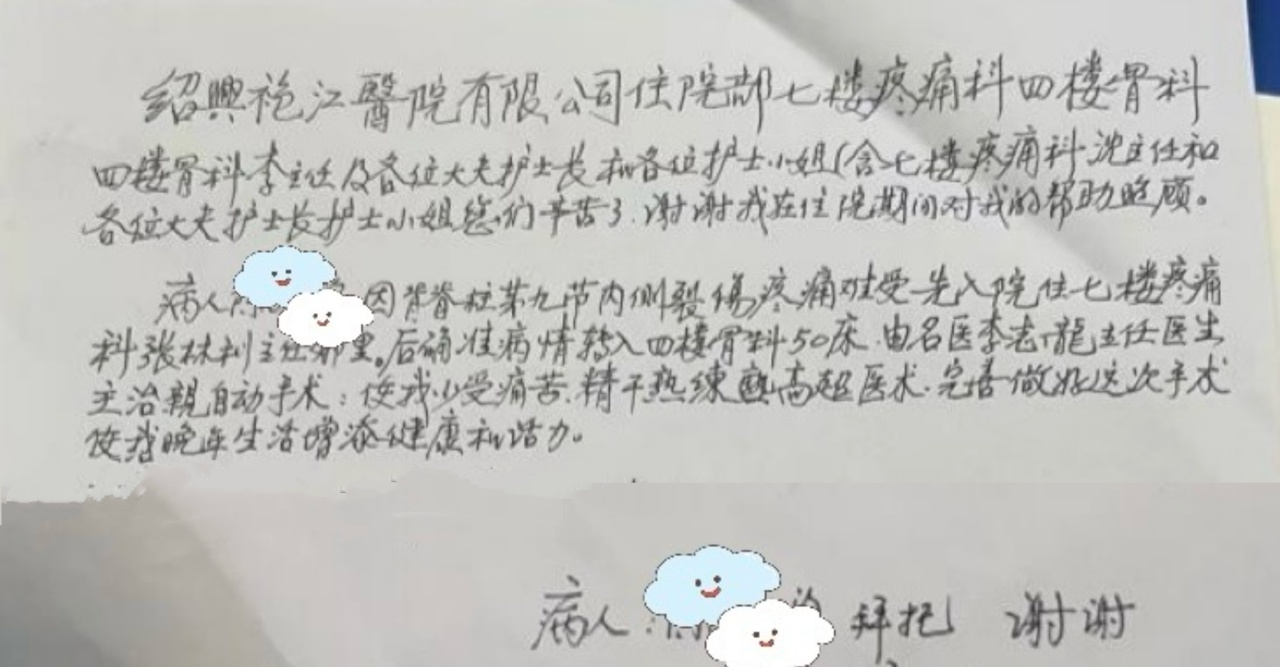 绍興袍江醫院有限公司住院部七楼疼痛科四楼骨科
四楼骨科李主任及各位大夫护士长和各位护士小姐(含七楼疼痛科沈主任和
各位大夫护士长护士小姐您们辛苦了.谢谢我在住院期间对我的帮助照顾。
病人 因背脊柱第九节内侧裂伤疼痛难受先入院住七楼疼痛
科张林利主任那里。后确准病情转入四楼骨科50床.由名医李志龍主任医生
主治親自动手术:使我少受痛苦.精干熟练 高超医术.完善做好这次手术
使我晚年生活增添健康和活力。
病人: 拜托 谢谢